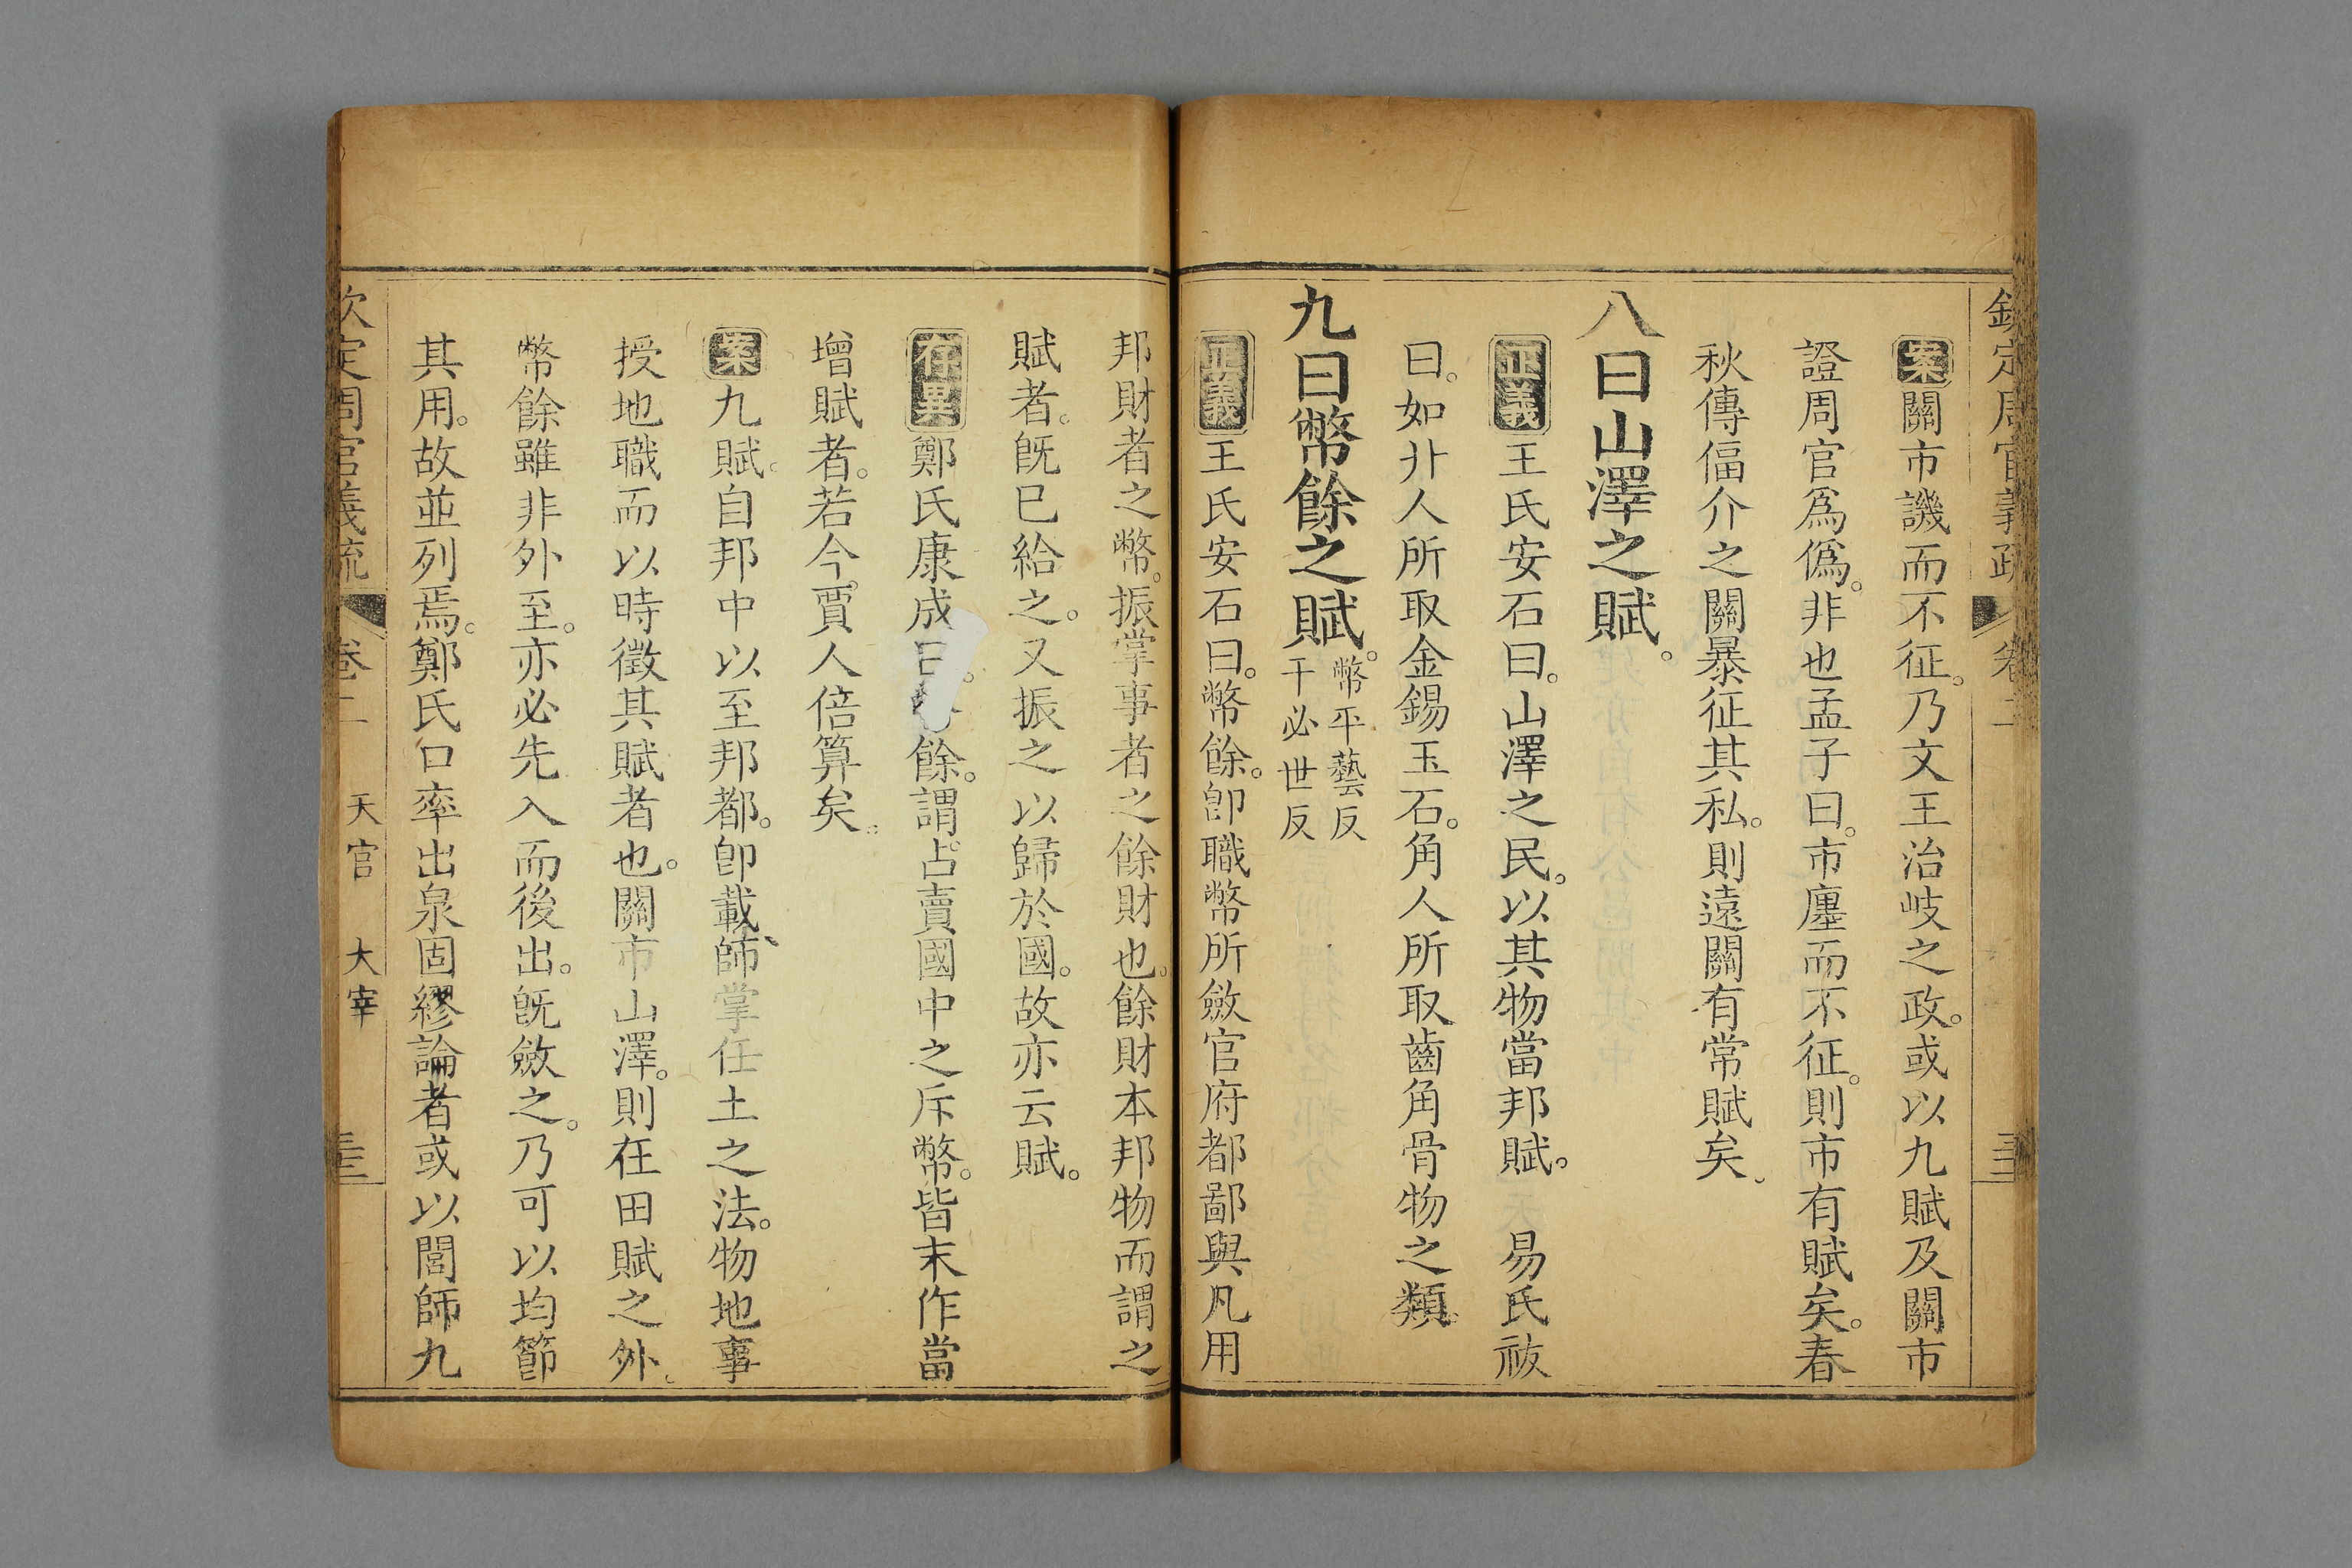 欽定周官義疏 卷二
案關市譏而不征。乃文王治岐之政。或以九賦及關市
證周官爲僞。非也孟子曰。市廛而不征。則市有賦矣。春
秋傳偪介之關暴征其私。則遠關有常賦矣。
八曰山澤之賦。
正義王氏安石曰。山澤之民。以其物當邦賦。 易氏祓
曰。如卝人所取金錫玉石。角人所取齒角骨物之類。
九曰幣餘之賦。幣平藝反
干必世反
正義王氏安石曰。幣餘。卽職幣所斂官府都鄙與凡用
邦財者之幣。振掌事者之餘財也。餘財本邦物而謂之
賦者。旣已給之。又振之以歸於國。故亦云賦。
存異鄭氏康成曰。餘。謂占賣國中之斥幣。皆末作當
增賦者。若今。賈人倍算矣。
案九賦。自邦中以至邦都。卽載師掌任土之法。物地事
授地職而以時徵其賦者也。關市山澤。則在田賦之外。
幣餘雖非外至。亦必先入而後出。旣斂之。乃可以均節
其用。故並列焉。鄭氏口率出泉固繆論者或以閭師九
欽定周官義疏 卷二 天官 大宰